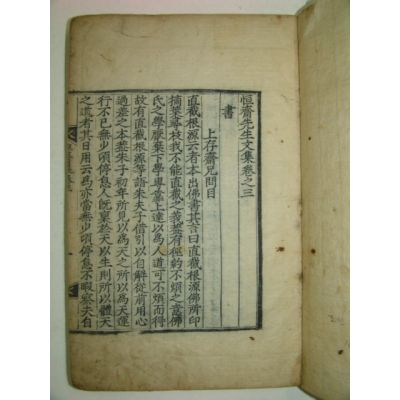 恒齋先生文集卷之三
書
上存齋兄問目
直截根源云者本出佛書其言曰直截根源佛所印
摘葉尋枝我不能直截之義蓋有徑約不煩之意佛
氏之學厭棄下學專學上達以爲人道可不煩而得
故有直截根源等語朱夫子借引以自解從前用心
過差之本蓋朱子初年所見以爲天之所以爲天運
行不已無少頃停息人旣稟於天以生則所以體天
之道者其日用云爲亦當無少頃停息不暇察夫自